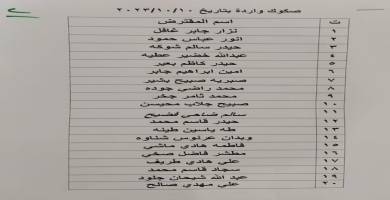 صكوك واردة بتاريخ ٢٠٢٣/١٠/١٠
ت اسم المقترض
١ نزار جابر غافل
٢ انور عباس حمود
٣ حيدر سالم شوكه
٤ عبدالله خضير عطيه
٥ حيدر كاظم بعير
٦ امين ابراهيم جابر
٧ صبريه صبيح بشير
٨ محمد راضي جوده
٩ محمد ثامر جخر
١٠ صبيح جلاب محيسن
١١ سالم ضاحي فضيح
١٢ حيدر قاسم محمد
١٣ طه ياسين طينه
١٤ ويدان عرنوس شناوه
١٥ فاطمه هادي ماشي
١٦ مظشر فاضل صخي
١٧ علي هادي طريف
١٨ سجاد قاسم محمد
١٩ عبد الله شيحان جلود
٢٠ علي مهدي صالح